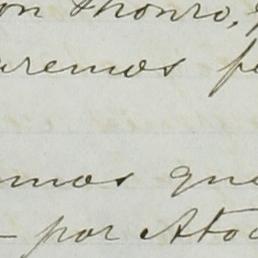 on Monro,
uremos pe
mos que
- por Atoc